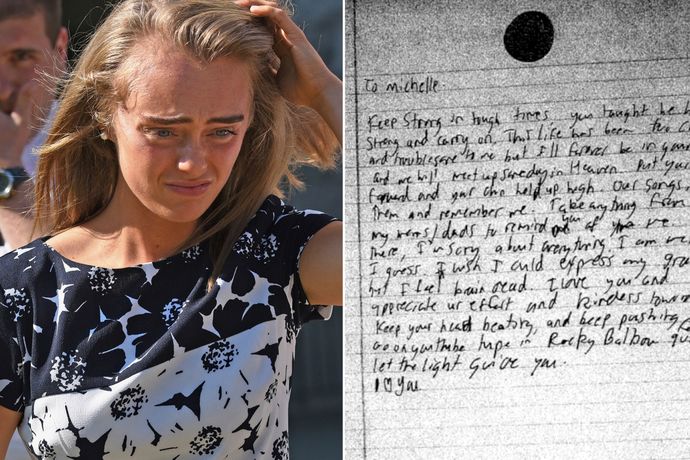 To Michelle
Keep Strong in tough times you taught me
Strong and carry on. This life has been too
and troublesome to me but I'll forever be in
and we will meet up someday in Heaven. Put your
forward and your chin held up high. Our songs
them and remember me. Take anything from
my moms/dads to remind you of me
there, I'm sorry about everything I am
I guess I wish I could express my
but I feel brain dead I love you and
appreciate ur effort and kindness
Keep your heart beating, and keep pushing
go on youtube in Rocky Balboa
let the light guide you.
I ♡ you